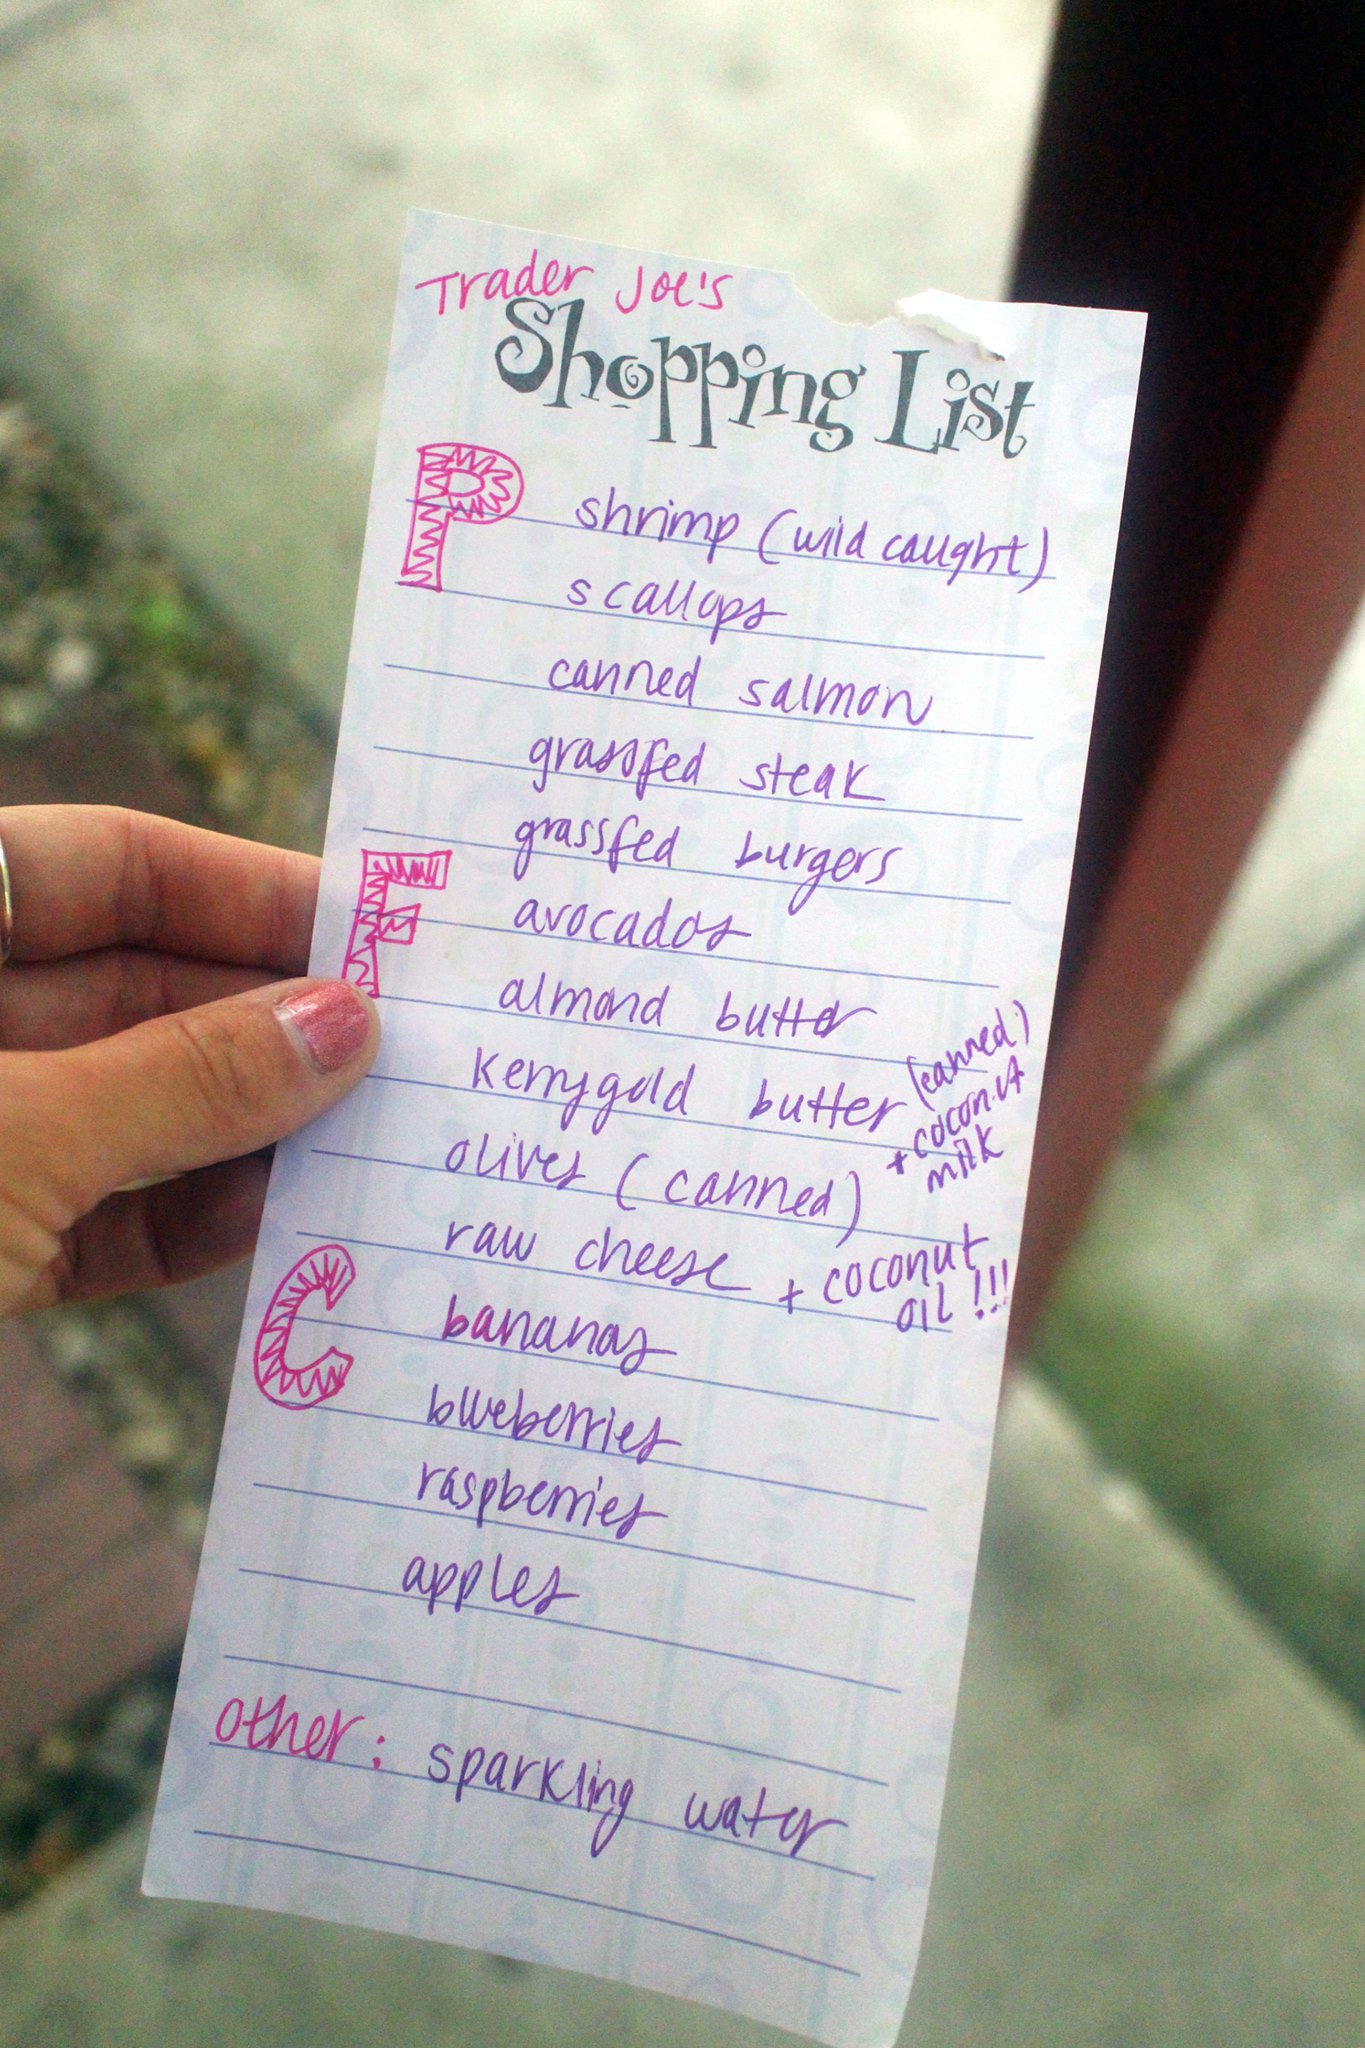 Trader Joe's
Shopping List
P
shrimp (wild caught)
scallops
canned salmon
grassfed steak
grassfed burgers
F
avocados
almond butter
Kerrygold butter
+ (canned) coconut milk
olives (canned)
raw cheese + coconut oil!!!
C
bananas
blueberries
raspberries
apples
other: sparkling water